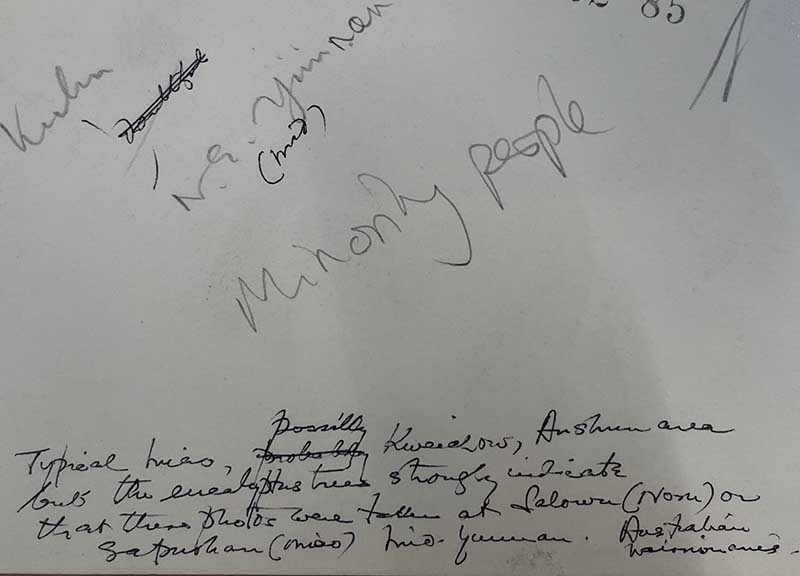 85
Kuhn
N.E. Yunnan
Minority people
possibly
Typical Miao, probably Kweichow, Anshun area
but the eucalyptus trees strongly indicate
that these photos were taken at Salowu (Nosu) or
Sapushan (Miao) Yunnan. Australian
missionaries.